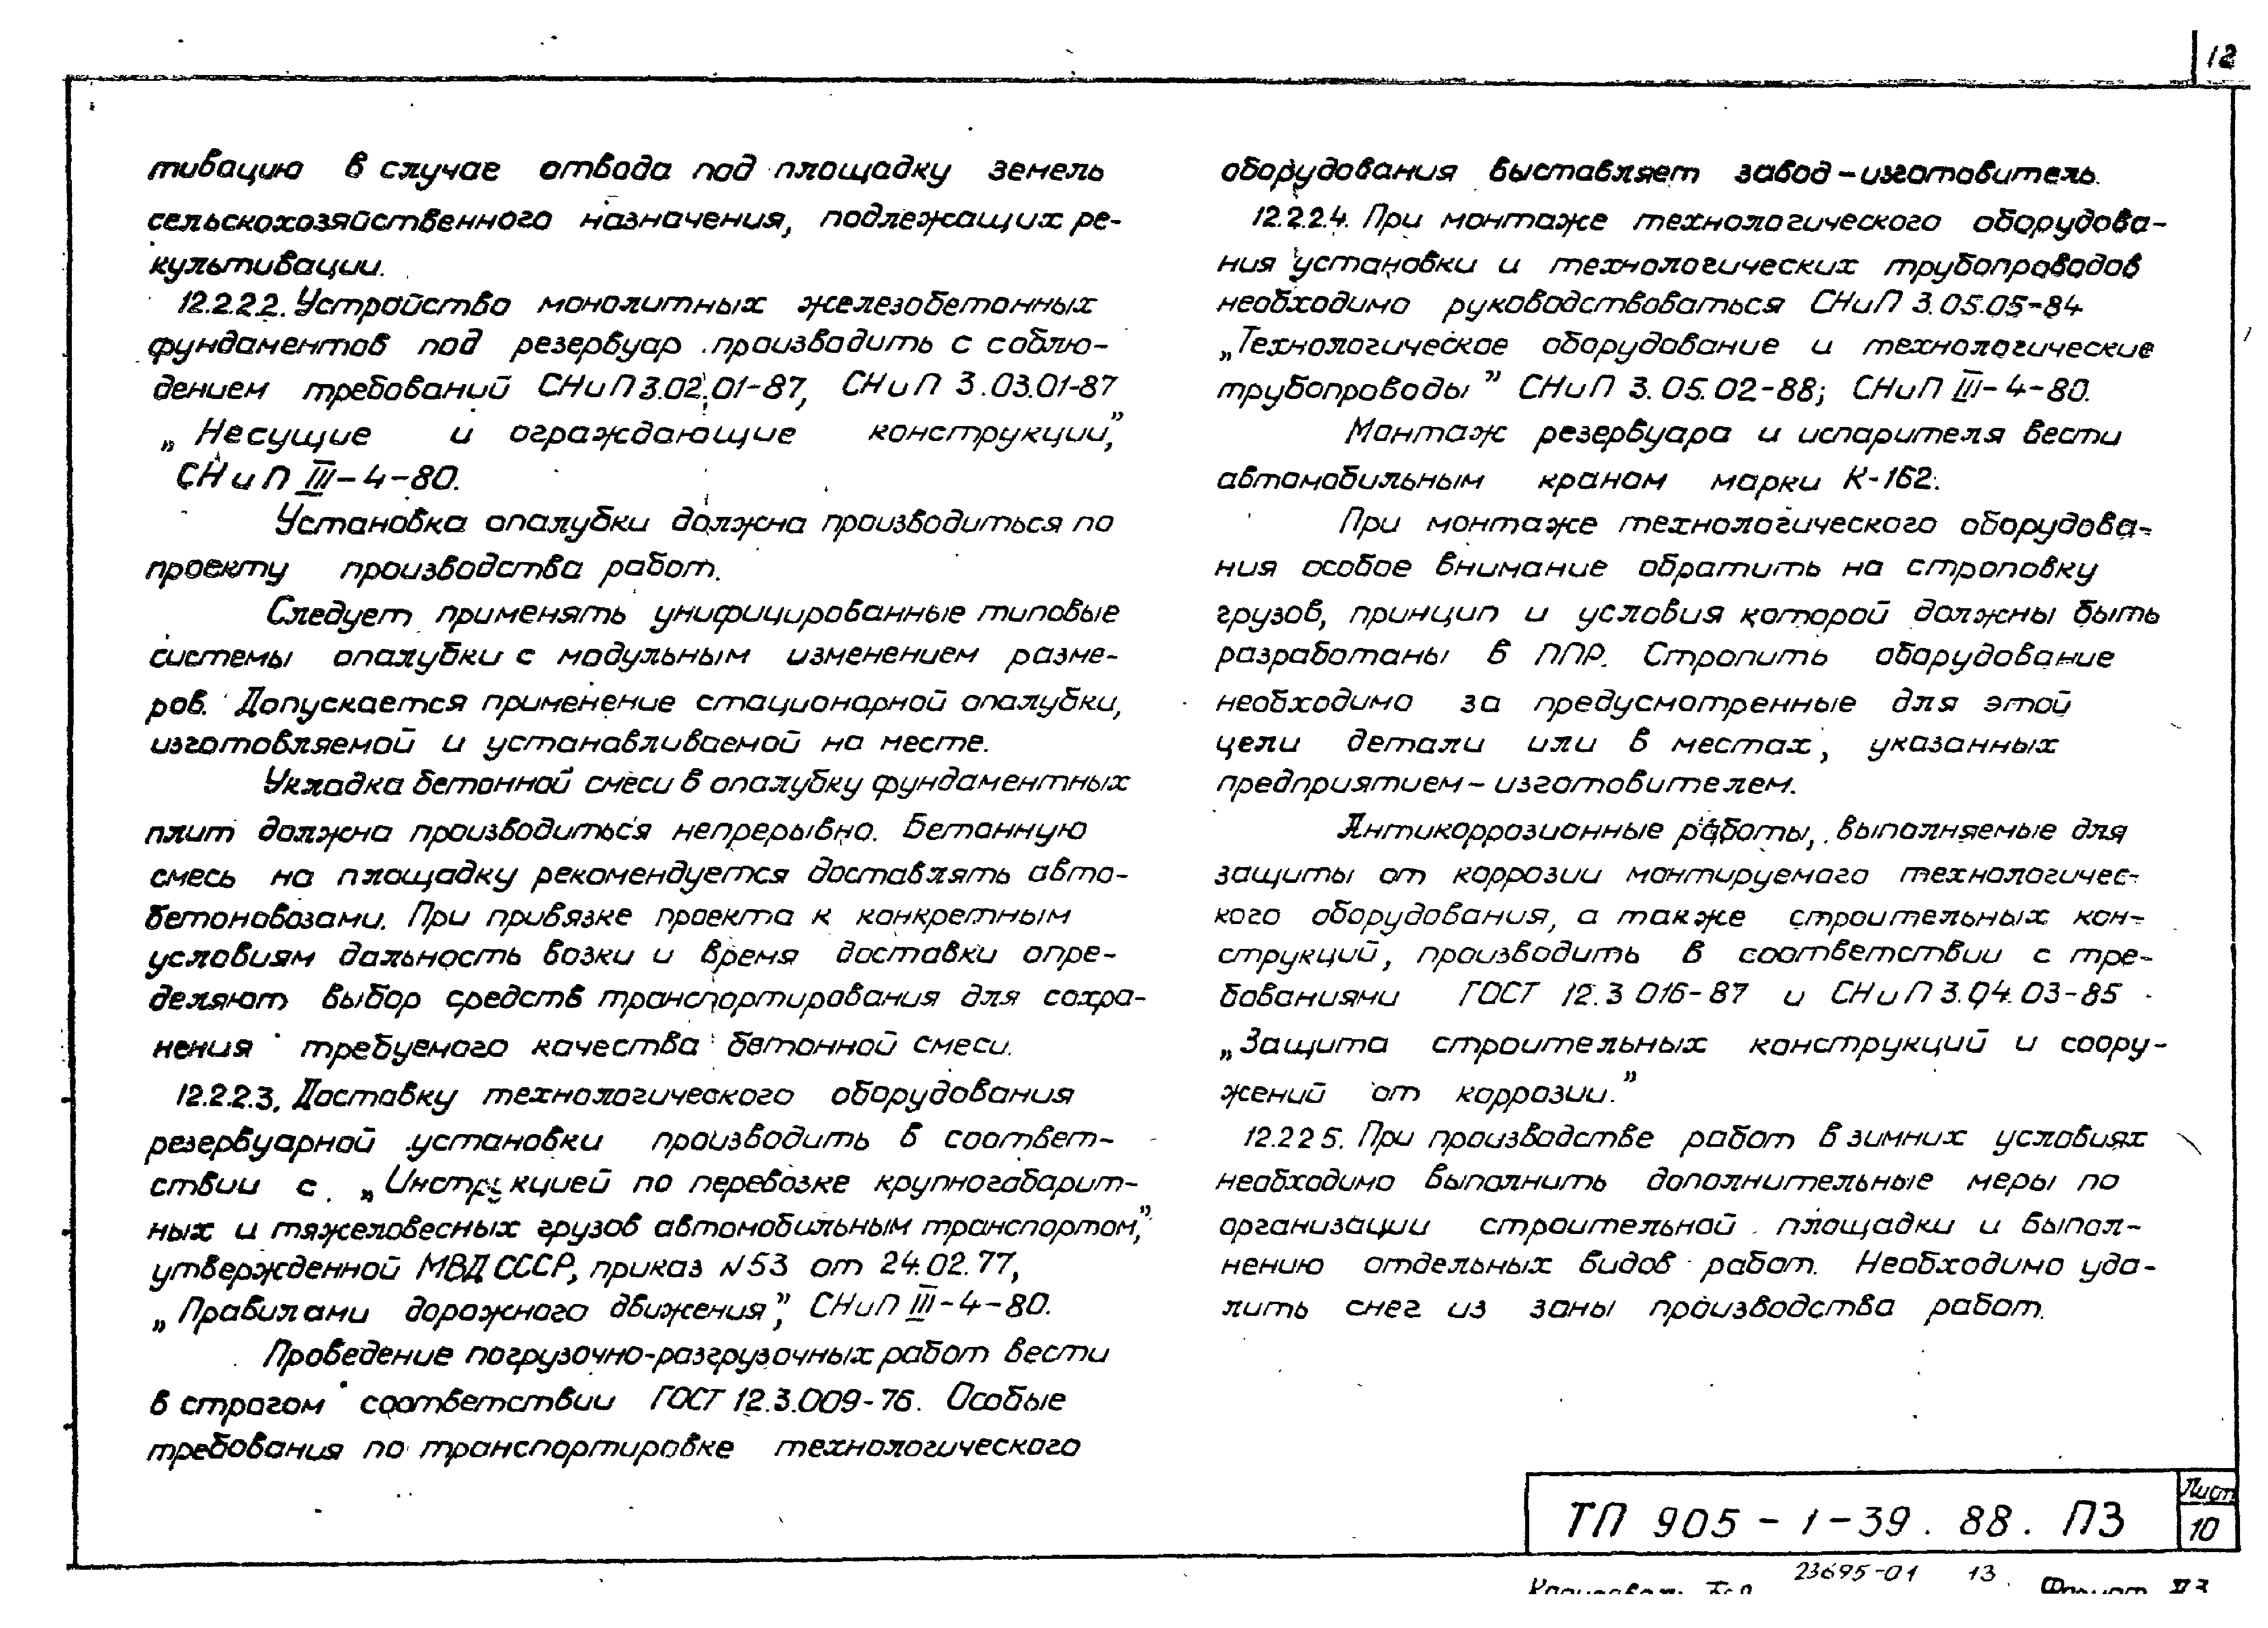 12
тивацию в случае отвода под площадку земель
сельскохозяйственного назначения, подлежащих ре-
культивации.
12.2.2.2. Устройство монолитных железобетонных
фундаментов под резервуар производить с соблю-
дением требований СНиП 3.02.01-87, СНиП 3.03.01-87
„Несущие и ограждающие конструкции,"
СНиП III-4-80.
Установка опалубки должна производиться по
проекту производства работ.
Следует применять унифицированные типовые
системы опалубки с модульным изменением разме-
ров. Допускается применение стационарной опалубки,
изготовляемой и устанавливаемой на месте.
Укладка бетонной смеси в опалубку фундаментных
плит должна производиться непрерывно. Бетонную
смесь на площадку рекомендуется доставлять авто-
бетоновозами. При привязке проекта к конкретным
условиям дальность возки и время доставки опре-
деляют выбор средств транспортирования для сохра-
нения требуемого качества бетонной смеси.
12.2.2.3. Доставку технологического оборудования
резервуарной установки производить в соответ-
ствии с „Инструкцией по перевозке крупногабарит-
ных и тяжеловесных грузов автомобильным транспортом,"
утвержденной МВД СССР, приказ N53 от 24.02.77,
„Правилами дорожного движения," СНиП III-4-80.
Проведение погрузочно-разгрузочных работ вести
в строгом соответствии ГОСТ 12.3.009-76. Особые
требования по транспортировке технологического
оборудования выставляет завод-изготовитель.
12.2.2.4. При монтаже технологического оборудова-
ния установки и технологических трубопроводов
необходимо руководствоваться СНиП 3.05.05-84
„Технологическое оборудование и технологические
трубопроводы" СНиП 3.05.02-88; СНиП III-4-80.
Монтаж резервуара и испарителя вести
автомобильным краном марки К-162.
При монтаже технологического оборудова-
ния особое внимание обратить на строповку
грузов, принцип и условия которой должны быть
разработаны в ППР. Стропить оборудование
необходимо за предусмотренные для этой
цели детали или в местах, указанных
предприятием-изготовителем.
Антикоррозионные работы, выполняемые для
защиты от коррозии монтируемого технологичес-
кого оборудования, а также строительных кон-
струкций, производить в соответствии с тре-
бованиями ГОСТ 12.3 016-87 и СНиП 3.04.03-85
„Защита строительных конструкций и соору-
жений от коррозии."
12.2 2 5. При производстве работ в зимних условиях
необходимо выполнить дополнительные меры по
организации строительной площадки и выпол-
нению отдельных видов работ. Необходимо уда-
лить снег из зоны производства работ.
ТП 905-1-39.88.ПЗ
Лист
10
23695-01 13